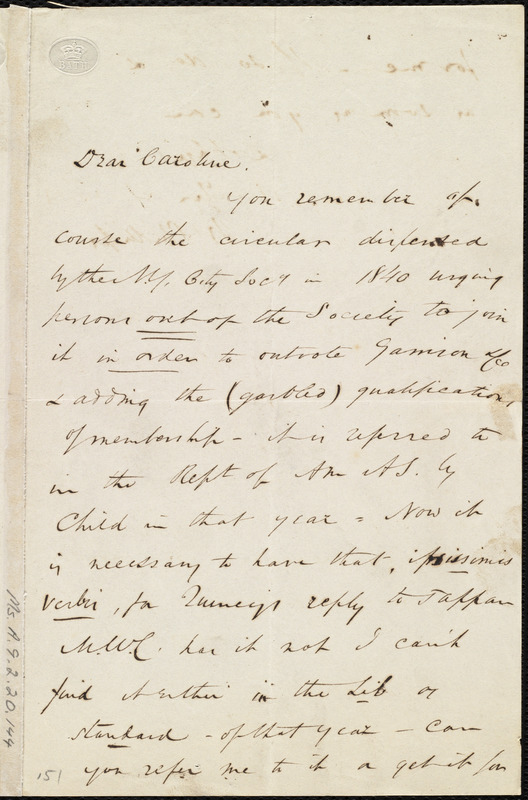 BATH
Dear Caroline.
You remember of
course the circular dispensed
by the N.Y. City Socy in 1840 urging
persons out of the Society to join
it in order to outvote Garrison &c
& adding the (garbled) qualifications
of membership - it is referred to
in the Rept of Am A.S. by
Child in that year = Now it
is necessary to have that, ipsissimis
verbis, for Quincy's reply to Tappan
M.W.C. has it not I can't
find it either in the Lib or
standard - of that year - can
you refer me to it or get it for
Ms. A. 9. 2. 20. 144
151